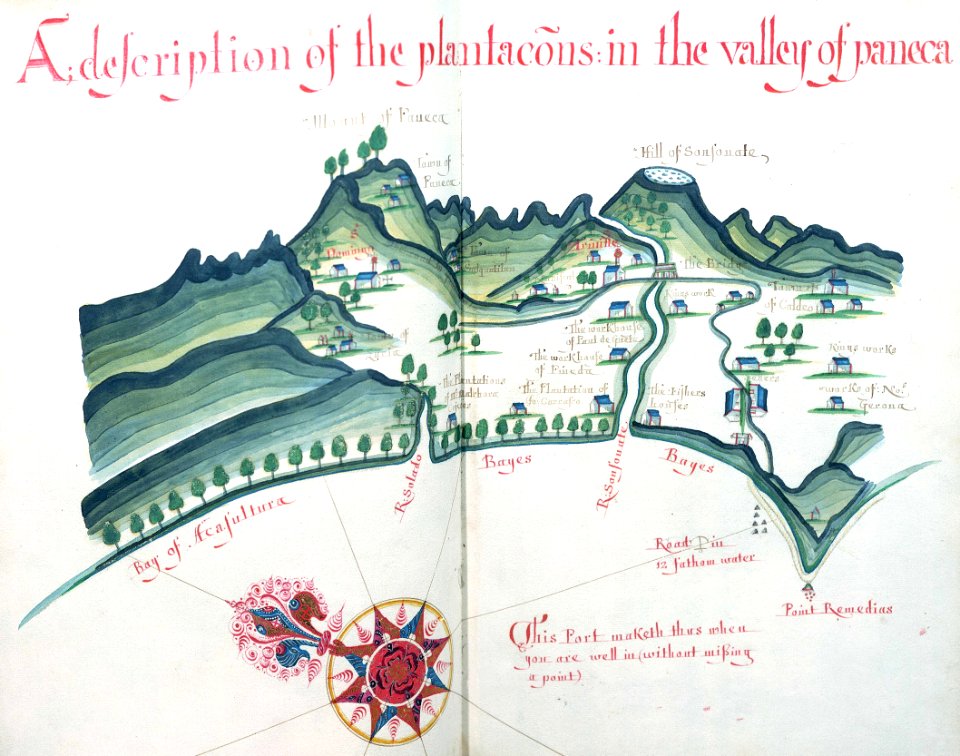 A: description of the plantacõns: in the valleis of paneca
Mount of Paneca
Town of
Paneca
Hill of Sonsonate
The Bridg
Town of
of Caldeo
Kings work
The workhouse
of Paul de
The workhouse
of Pineda
The Plantations
The Plantation of
The Fishers
houses
Kings works
works of: No.
Gerona
R: Salado
Bayes
R: Sonsonate
Bayes
Bay of Acasultura
Road in
12 fathom water
Point Remedias
This Port maketh thus when
you are well in (without missing
a point)